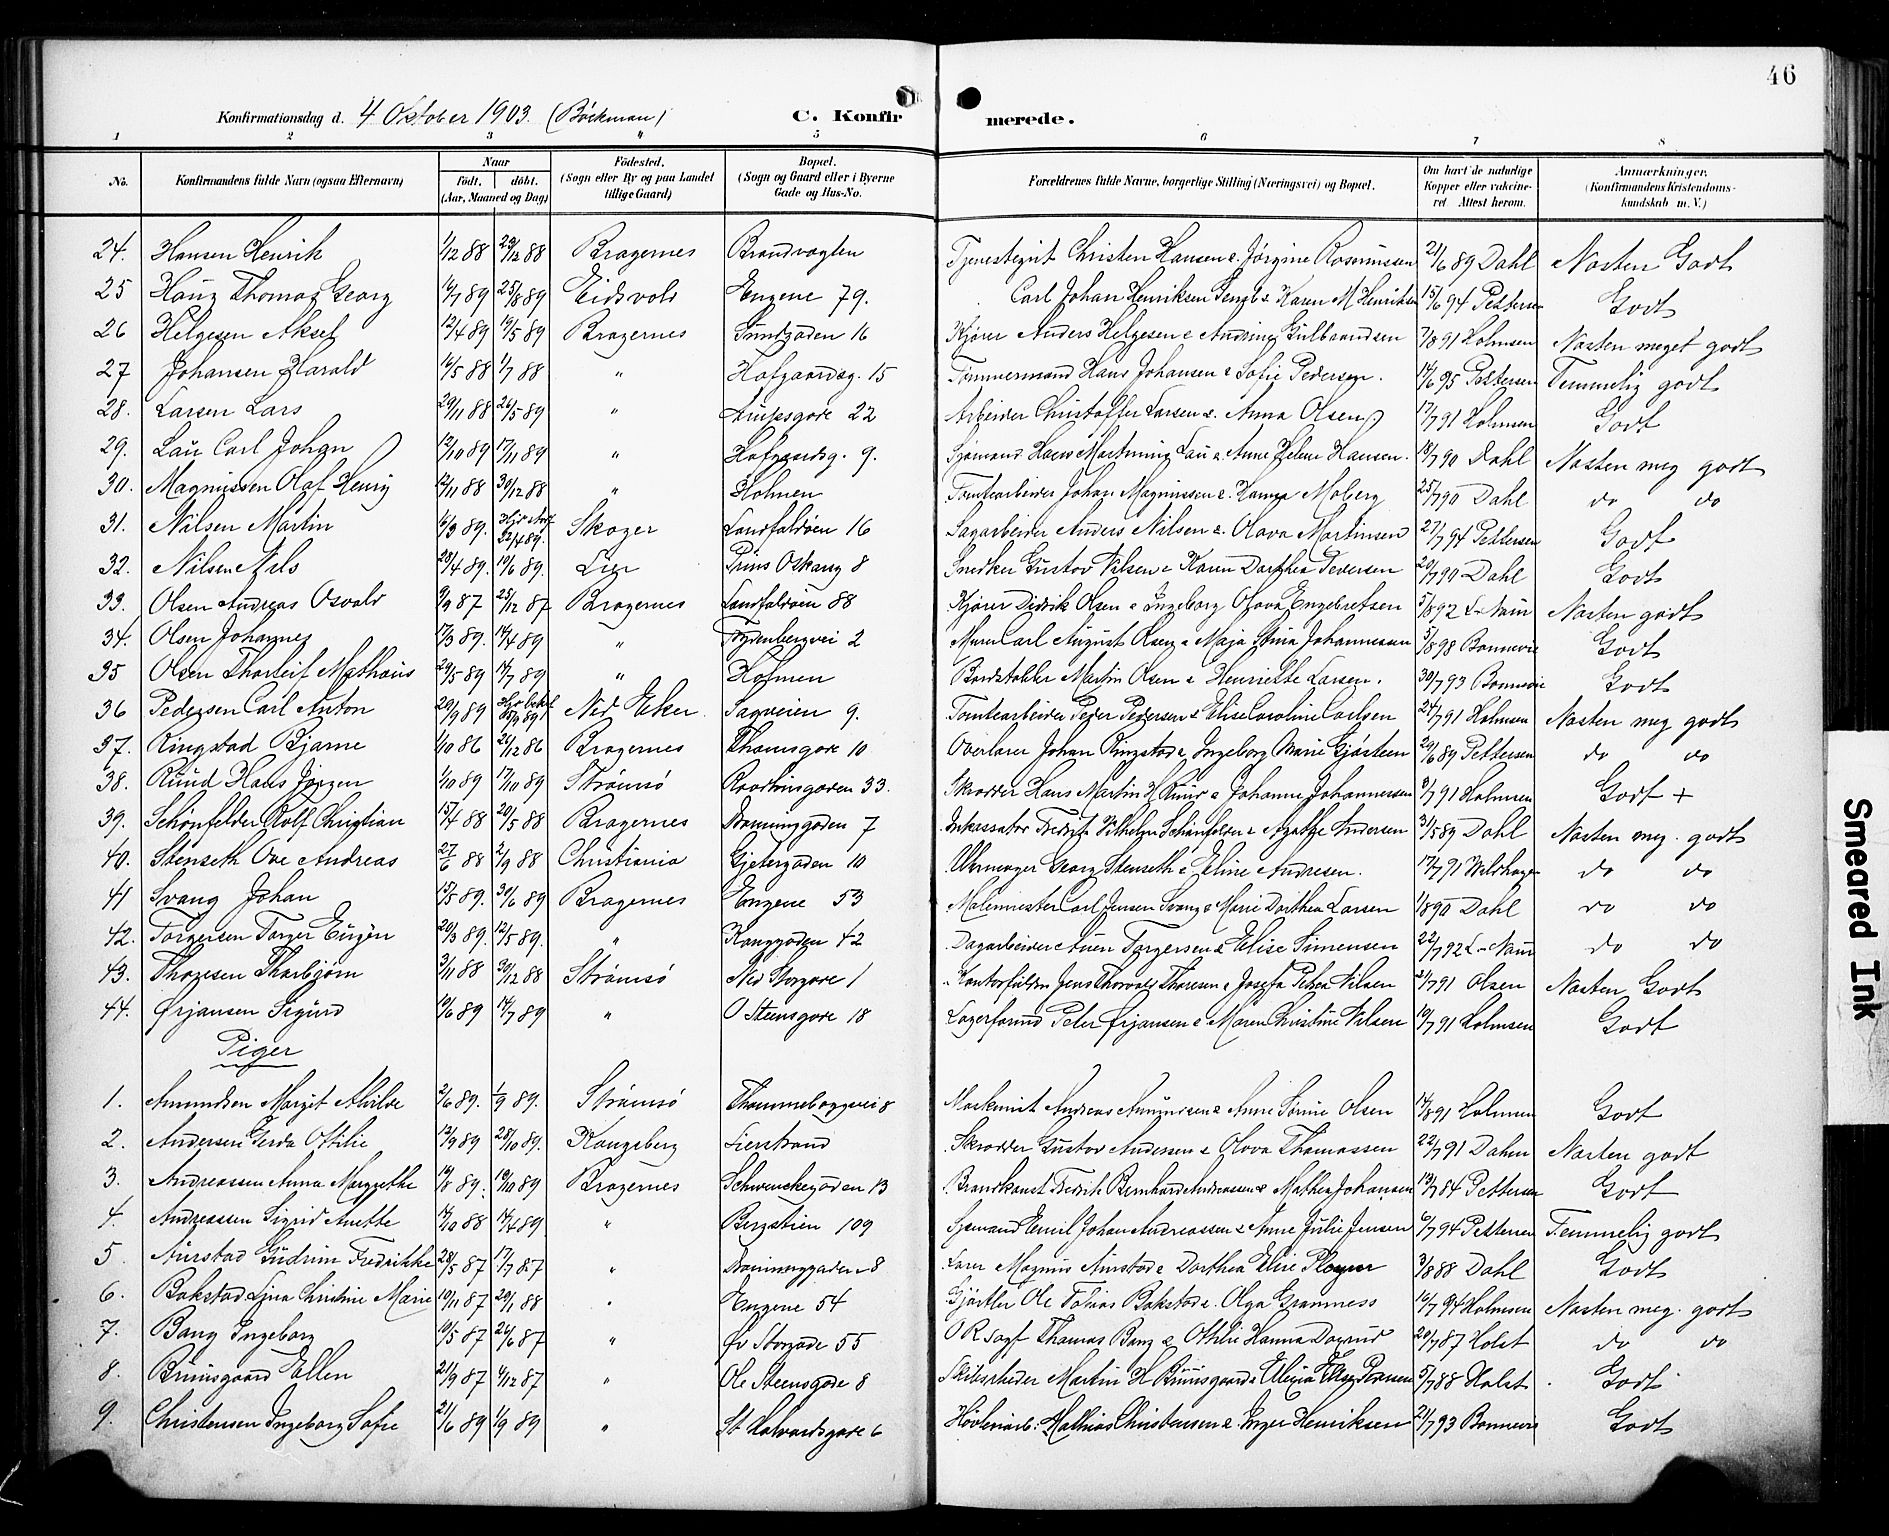 46
Konfirmationsdag d. 4 Oktober 1903. (Böckman)
C. Konfirmerede.
1 2 3 " 5 6 7 8
No. Konfirmandens fulde Navn (ogsaa Efternavn) Naar født. døbt. (Aar, Maaned og Dag) Fødested. (Sogn eller By og paa Landet tillige Gaard) Bopæl. (Sogn og Gaard eller i Byerne Gade og Hus-No. Forældrenes fulde Navne, borgerlige Stilling (Næringsvei) og Bopæl. Om havt de naturlige Kopper eller vakcineret Attest herom. Anmærkninger. (Konfirmandens Kristendomskundskab m. V.)
24. Hansen Henrik 1/12 88 29/12 88 Bragernes Brandvagten Christen Hansen & Jørgine Rasmussen 21/6 89 Dahl Næsten Godt
25 Haug Thomas Georg 16/7 89 25/8 89 Eidsvold Engene 79. Carl Johan Henriksen & Karen M Henriksen 15/6 94 Pettersen Godt
26 Helgesen Aksel 12/4 89 19/5 89 Bragernes Sundgaden 16 Kjører Anders Helgesen & Andrine Gulbrandsen 7/8 91 Holmsen Næsten meget godt
27 Johansen Harald 16/5 88 1/7 88 " Hofgaardsg. 15 Tømmermand Hans Johansen & Sofie Pedersen. 14/6 95 Pettersen Temmelig godt
28. Larsen Lars 29/11 88 26/5 89 " 22 Arbeider Christoffer Larsen & Anna Olsen 17/7 91 Holmsen Godt
29. Lau Carl Johan 12/10 89 17/11 89 " Hofgaardsg. 9. Sjømand Hans Lau & Anne Helene Hansen. 18/7 90 Dahl Næsten meg godt
30. Magnussen Olaf Henry 12/11 88 30/12 88 " Holmen Tomtearbeider Johan Magnussen & Hanna Moberg 25/7 90 Dahl do do
31. Nilsen Martin 16/3 89. 22/4 89. Skoger Landfaldøen 16 Sagarbeider Anders Nilsen & Olava Martinsen 27/7 94 Pettersen Godt
32. Nilsen Nils 28/4 89. 19/6 89. Lier Prins Oskarsg 8 Snedker Gustav Nilsen & Karen Dorthea Pedersen 20/7 90 Dahl Godt
33. Olsen Andreas Osvald 9/9 87 25/12 87 Bragernes Landfaldøen 88 Kjører Didrik Olsen & Ingeborg Olava Engebretsen 5/8 92 Næsten godt
34. Olsen Johannes 17/3 89. 14/4 89 " 2 Murer Carl August Olsen & Maja Stina Johannessen 5/8 98 Bonnevie Godt
35 Olsen Thorleif Mathæus 29/5 89 14/7 89 " Holmen Bordstabler Martin Olsen & Henriette Larsen. 30/7 93 Bonnevie Godt
36 Pedersen Carl Anton 20/9 89 Ned Eker Sagveien 9. Tomtearbeider Peder Pedersen & Elise Caroline Carlsen 24/7 91 Holmsen Næsten meg godt
37. Ringstad Bjarne 1/10 86 26/12 86 Bragernes Thamsgade 10 Overlærer Johan Ringstad & Ingeborg Marie Gjøsteen 29/6 89 Pettersen do do
38. Ruud Hans Jørgen 1/10 89 17/11 89 Strømsø 33. Skrædder Hans Martin H Ruud & Johanne Johannessen 3/7 91 Holmsen Godt +
39. Schönfelder Rolf Christian 15/4 88 20/5 88 Bragernes Dronninggaden 7 Inkassator Fredrik Vilhelm Schönfelder & Agathe Andersen 31/5 89 Dahl Næsten meg. godt
40. Stenseth Ove Andreas 27/6 88 2/9 88 Christiania Gjetergaden 10 Uhrmager Georg Stenseth & Eline Andresen. 17/7 91 Wildhagen do do
41 Svang Johan 15/5 89. 30/6 89 Bragernes Engene 53 Malermester Carl Jensen Svang & Marie Dorthea Larsen 1/8 90 Dahl do do
42. Torgersen Torger Eugen 20/3 89. 12/5 89. " Konggaden 42 Dagarbeider Torgersen & Elise Simensen 22/7 92 do do
43. Thoresen Thorbjørn 3/11 88 30/12 88 Strømsø Ned Storgade 1 Jens Thorvald Thoresen & Josefa Petrea Nilsen 21/7 91 Olsen Næsten Godt
44. Ørjansen Sigurd 10/6 89 14/7 89 " O Steensgade 18 Lagerformd Peter Ørjansen & Maren Christine Nilsen 10/7 91 Holmsen Godt
Piger
1. Amundsen Margit Alvilde 2/6 89. 1/9 89. Strømsø 8 Maskinist Andreas Amundsen & Anne Sørine Olsen 14/8 91 Holmsen Godt
2. Andersen Gerda Othilie 12/9 89 28/10 89. Kongsberg Lierstrand Skrædder Gustav Andersen & Olava Thomassen 22/7 91 Dahm Næsten godt
3. Andreassen Anna Margrethe 19/8 89. 19/10 89 Bragernes Schwenckegaden 13 Brandkonst Fredrik Bernhard Andreassen & Mathea Johansen 13/7 84 Pettersen Godt
4. Andreassen Sigrid Anette 17/10 88 14/4 89 " Bergstien 109 Sjømand Emil Johan Andreassen & Anne Julie Jensen 6/7 94 Pettersen Temmelig godt
5. Aurstad Gudrun Fredrikke 28/5 87 17/7 87 " Dronninggaden 8 Lærer Magnus Aurstad & Dorthea Elise 3/8 88 Dahl Godt
6. Bakstad Christine Marie 10/11 87 29/1 88 " Engene 54 Gjørtler Ole Tobias Bakstad & Olga Gramness 16/7 94 Holmsen Næsten meg. godt
7. Bang Ingeborg 19/5 87 26/6 87 " Øv Storgade 55 O R sagf Thomas Bang & Othilie Hanna 20/7 87 Holst do do
8. Bruusgaard Ellen 21/9 87 4/12 87 " Ole Steensgade 8 Skibsrheder Martin H Bruusgaard & 5/7 88 Holst Godt
9. Christensen Ingeborg Sofie 21/6 89 1/9 89 " St Halvardsgade 6 Høvleriarb. Mathias Christensen & Inger Henriksen 21/7 93 Bonnevie Godt
Smeared Ink